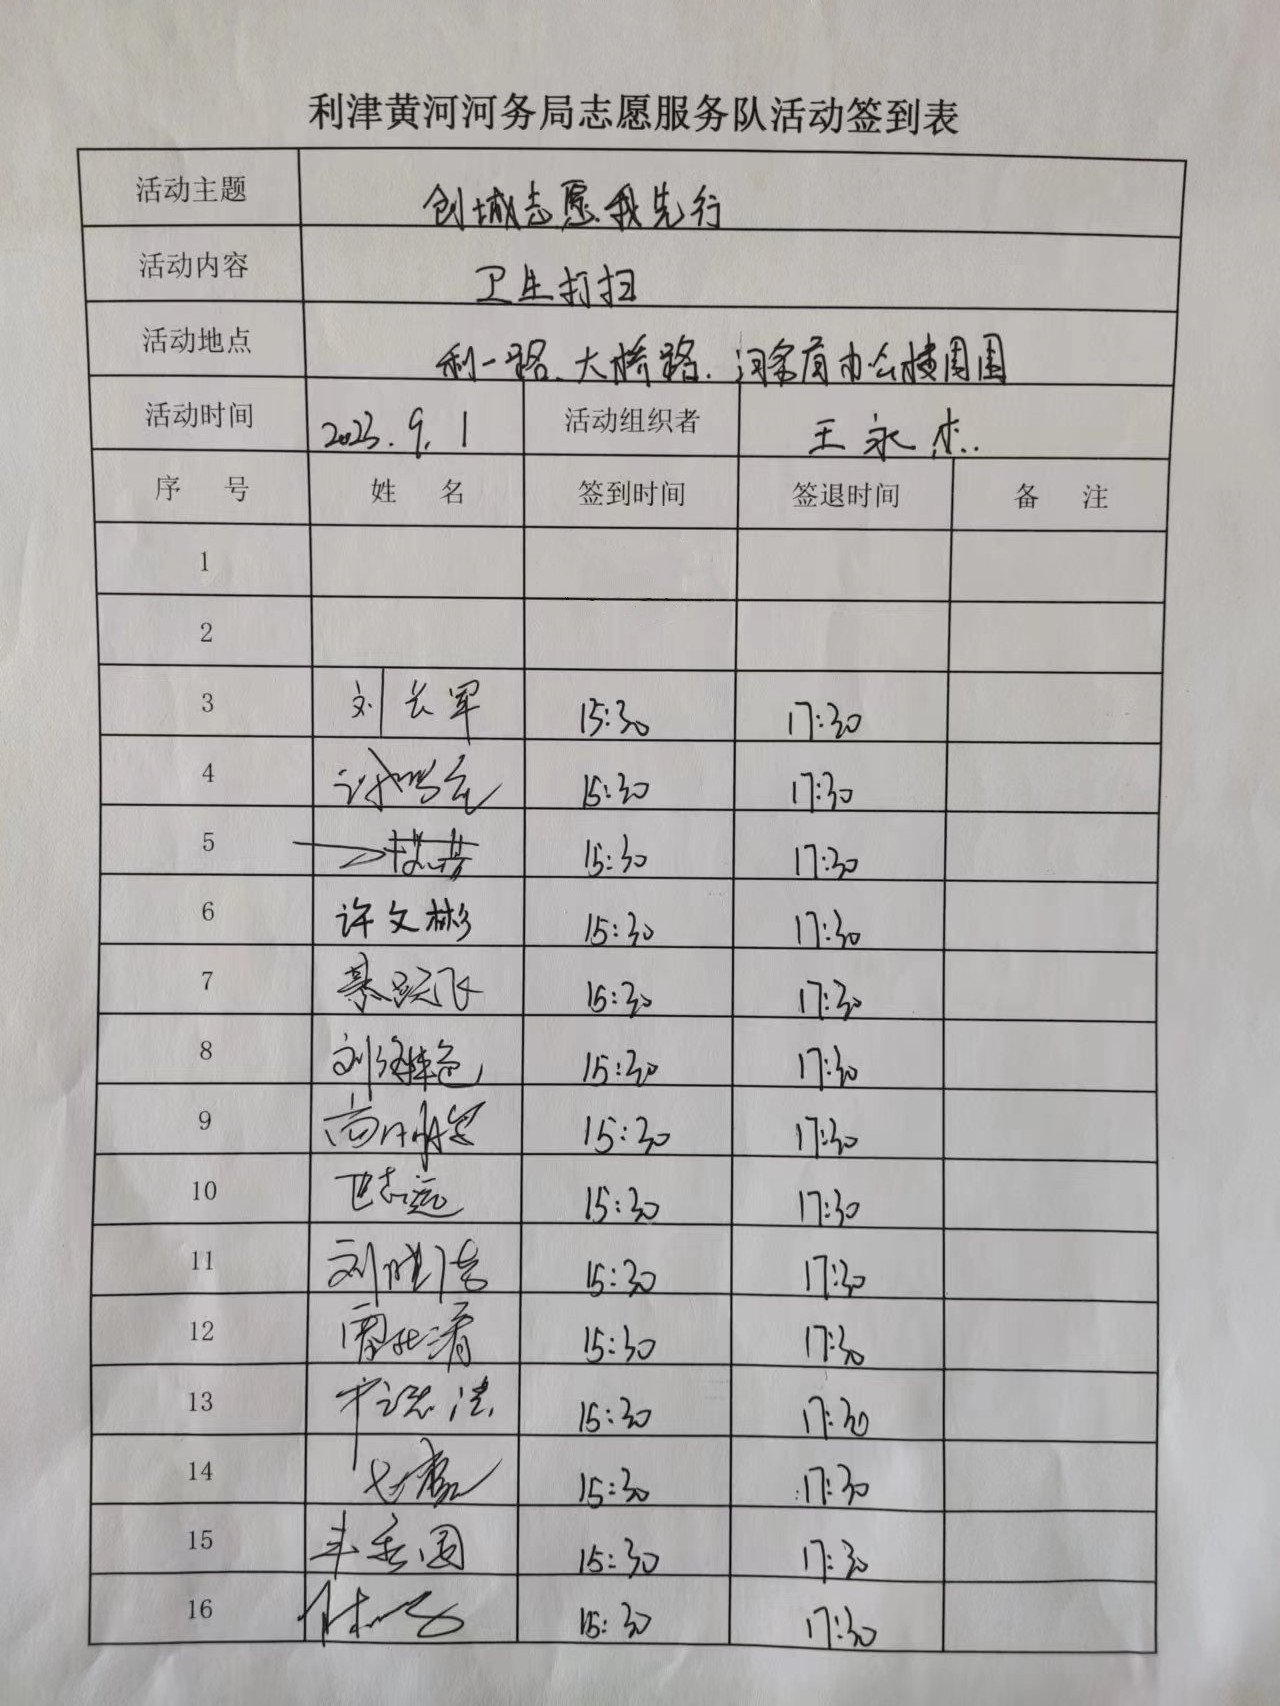 利津黄河河务局志愿服务队活动签到表
活动主题 创城志愿我先行
活动内容 卫生打扫
活动地点 利一路、大桥路、河务局办公楼周围
活动时间 2023.9.1 活动组织者 王永杰
序 号 姓 名 签到时间 签退时间 备 注
1
2
3 刘长军 15:30 17:30
4 15:30 17:30
5 15:30 17:30
6 许文彬 15:30 17:30
7 15:30 17:30
8 15:30 17:30
9 15:30 17:30
10 15:30 17:30
11 15:30 17:30
12 15:30 17:30
13 15:30 17:30
14 15:30 17:30
15 15:30 17:30
16 15:30 17:30